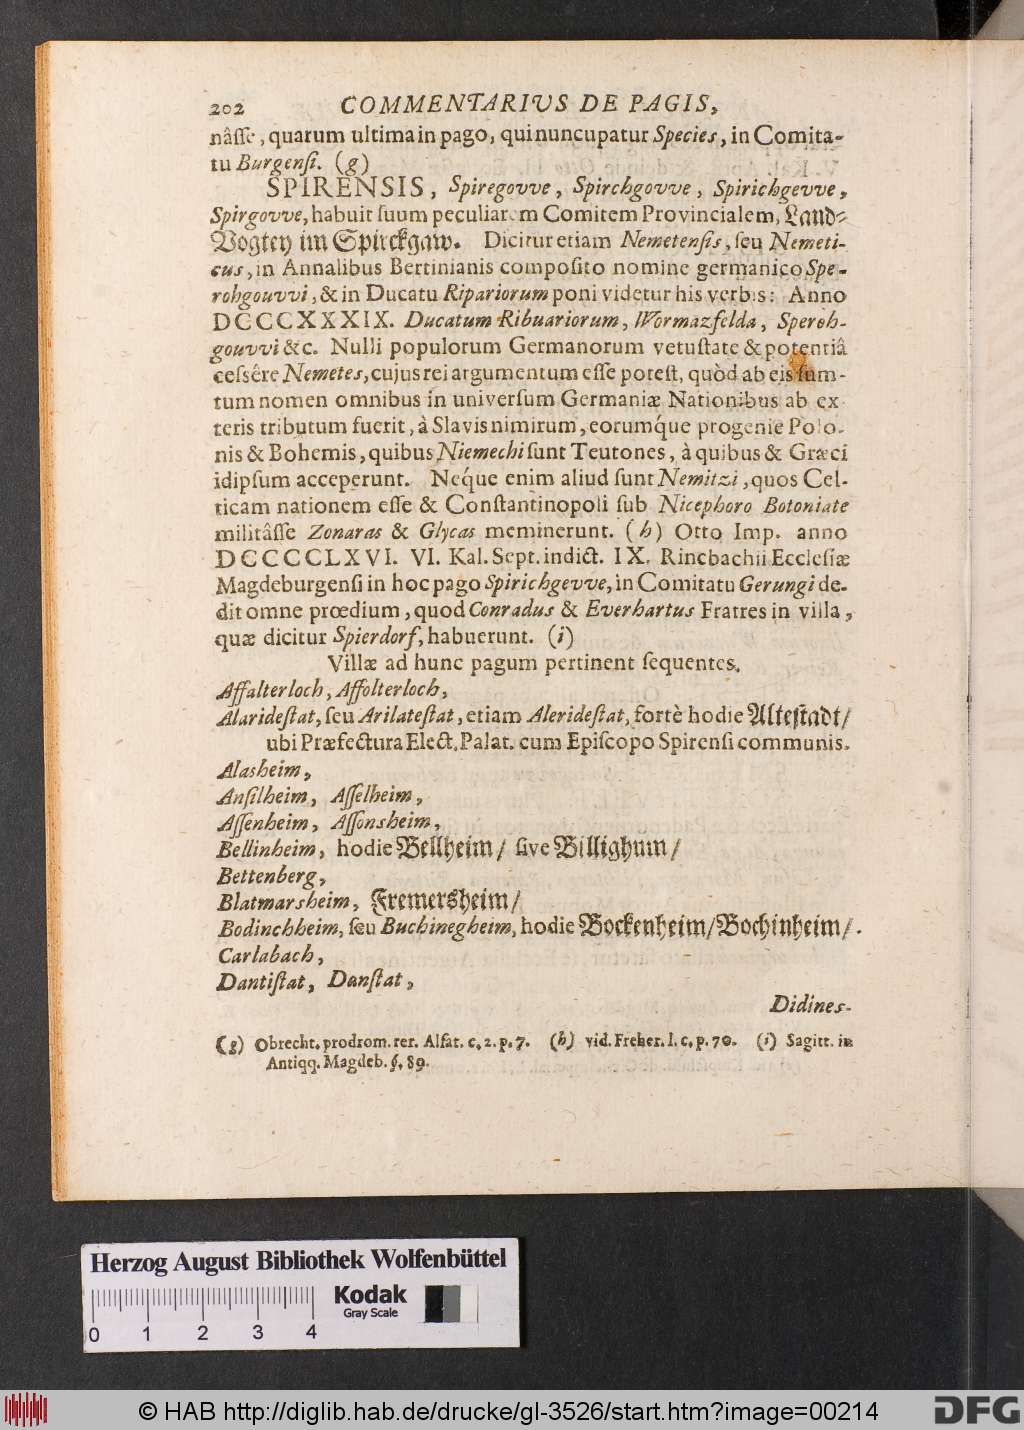 202 COMMENTARIVS DE PAGIS,
nâſſe, quarum ultima in pago, qui nuncupatur Species, in Comita-
tu Burgenſi. (g)
SPIRENSIS, Spiregovve, Spirchgovve, Spirichgevve,
Spirgovve, habuit ſuum peculiarem Comitem Provincialem, Land-
Vogtey im Spirckgaw. Dicitur etiam Nemetenſis, ſeu Nemeti-
cus, in Annalibus Bertinianis compoſito nomine germanico Spe-
rohgouvvi, & in Ducatu Ripariorum poni videtur his verbis: Anno
DCCCXXXIX. Ducatum Ribuariorum, Wormazfelda, Speroh-
gouvvi &c. Nulli populorum Germanorum vetuſtate & potentiâ
ceſsêre Nemetes, cujus rei argumentum eſſe poteſt, quòd ab eis ſum-
tum nomen omnibus in univerſum Germaniæ Nationibus ab ex
teris tributum fuerit, à Slavis nimirum, eorumq́ue progenie Polo-
nis & Bohemis, quibus Niemechi ſunt Teutones, à quibus & Græci
idipſum acceperunt. Neq́ue enim aliud ſunt Nemitzi, quos Cel-
ticam nationem eſſe & Conſtantinopoli ſub Nicephoro Botoniate
militâſſe Zonaras & Glycas meminerunt. (h) Otto Imp. anno
DCCCCLXVI. VI. Kal. Sept. indict. IX. Rincbachii Eccleſiæ
Magdeburgenſi in hoc pago Spirichgevve, in Comitatu Gerungi de-
dit omne prœdium, quod Conradus & Everhartus Fratres in villa,
quæ dicitur Spierdorf, habuerunt. (i)
Villæ ad hunc pagum pertinent ſequentes.
Affalterloch, Affolterloch,
Alarideſtat, ſeu Arilateſtat, etiam Alerideſtat, fortè hodie Alteſtadt/
ubi Præfectura Elect. Palat. cum Epiſcopo Spirenſi communis.
Alasheim,
Anſilheim, Aſſelheim,
Aſſenheim, Aſſonsheim,
Bellinheim, hodie Bellheim/ ſive Billighum/
Bettenberg,
Blatmarsheim, Fremersheim/
Bodinchheim, ſeu Buchinegheim, hodie Bockenheim/Bochinheim/.
Carlabach,
Dantiſtat, Danſtat,
Didines-
(g) Obrecht. prodrom. rer. Alſat. c. 2. p. 7. (h) vid. Freher. l. c. p. 70. (i) Sagitt. in
Antiqq. Magdeb. §. 89.
Herzog August Bibliothek Wolfenbüttel
Kodak
Gray Scale
0 1 2 3 4
© HAB http://diglib.hab.de/drucke/gl-3526/start.htm?image=00214
DFG